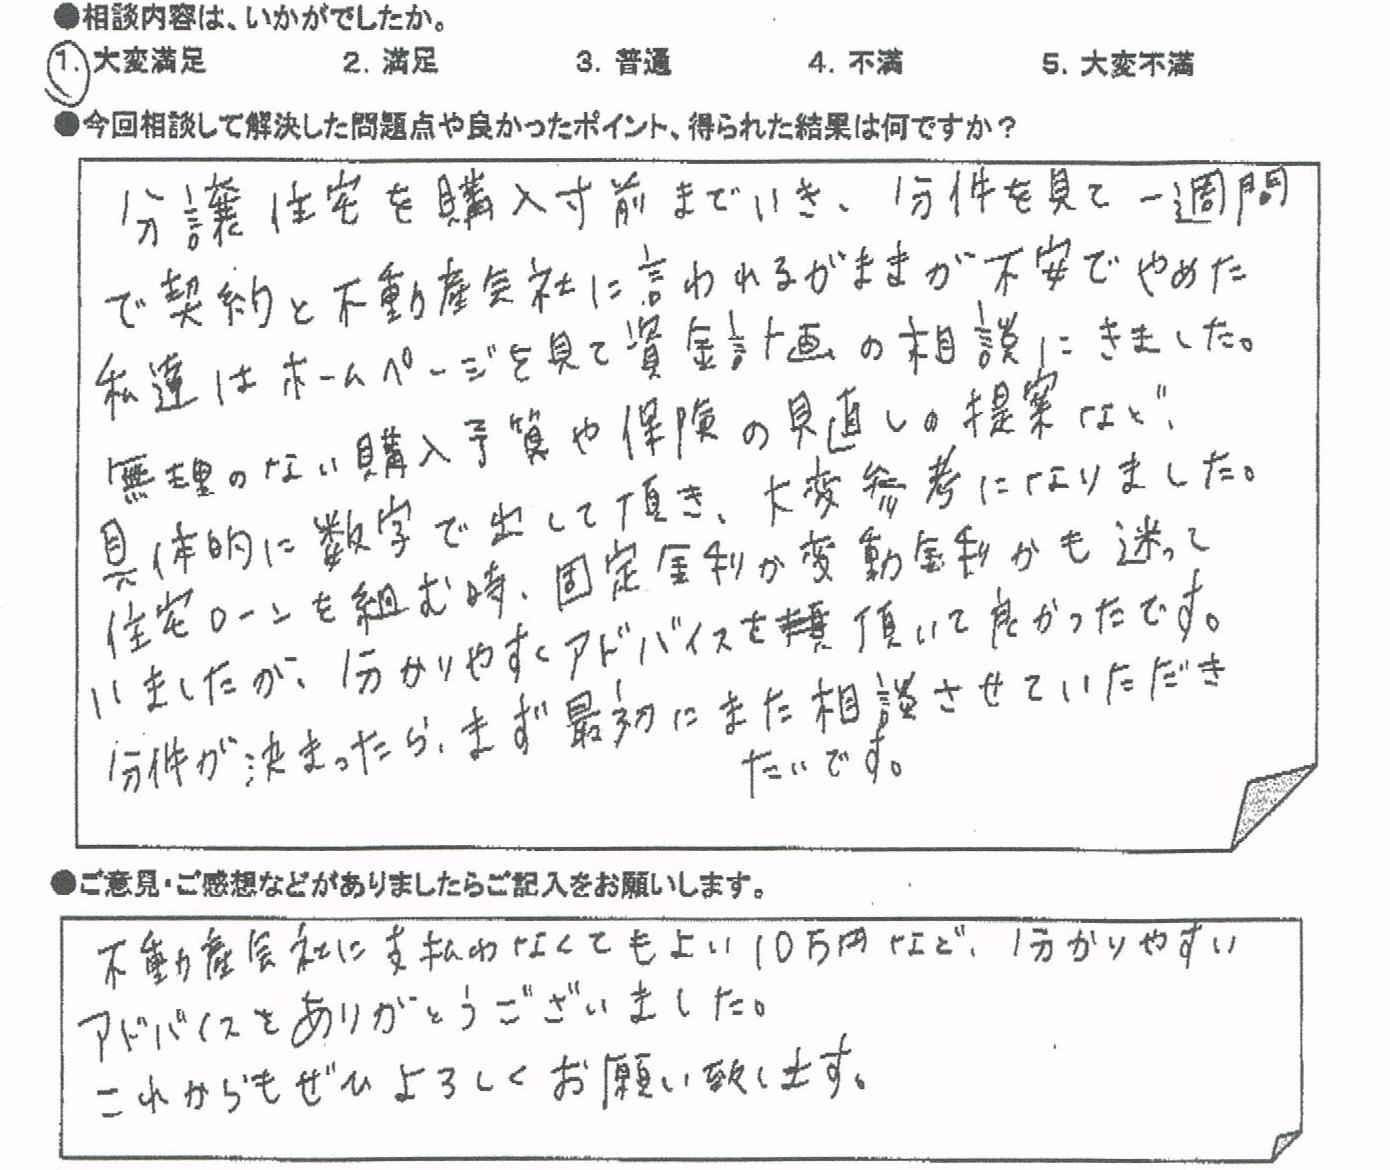 ●相談内容は、いかがでしたか。
1. 大変満足 2. 満足 3. 普通 4. 不満 5. 大変不満
●今回相談して解決した問題点や良かったポイント、得られた結果は何ですか？
分譲住宅を購入寸前までいき、分件を見て一週間
で契約と不動産会社に言われるがままが不安でやめた
私達はホームページを見て資金計画の相談にきました。
無理のない購入予算や保険の見直しの提案など、
具体的に数字で出して頂き、大変参考になりました。
住宅ローンを組む時、固定金利か変動金利かも迷って
いましたが、分かりやすくアドバイスを頂いて良かったです。
分件が決まったら、まず最初にまた相談させていただき
たいです。
●ご意見・ご感想などがありましたらご記入をお願いします。
不動産会社に支払わなくてもよい10万円など、分かりやすい
アドバイスをありがとうございました。
これからもぜひよろしくお願い致します。